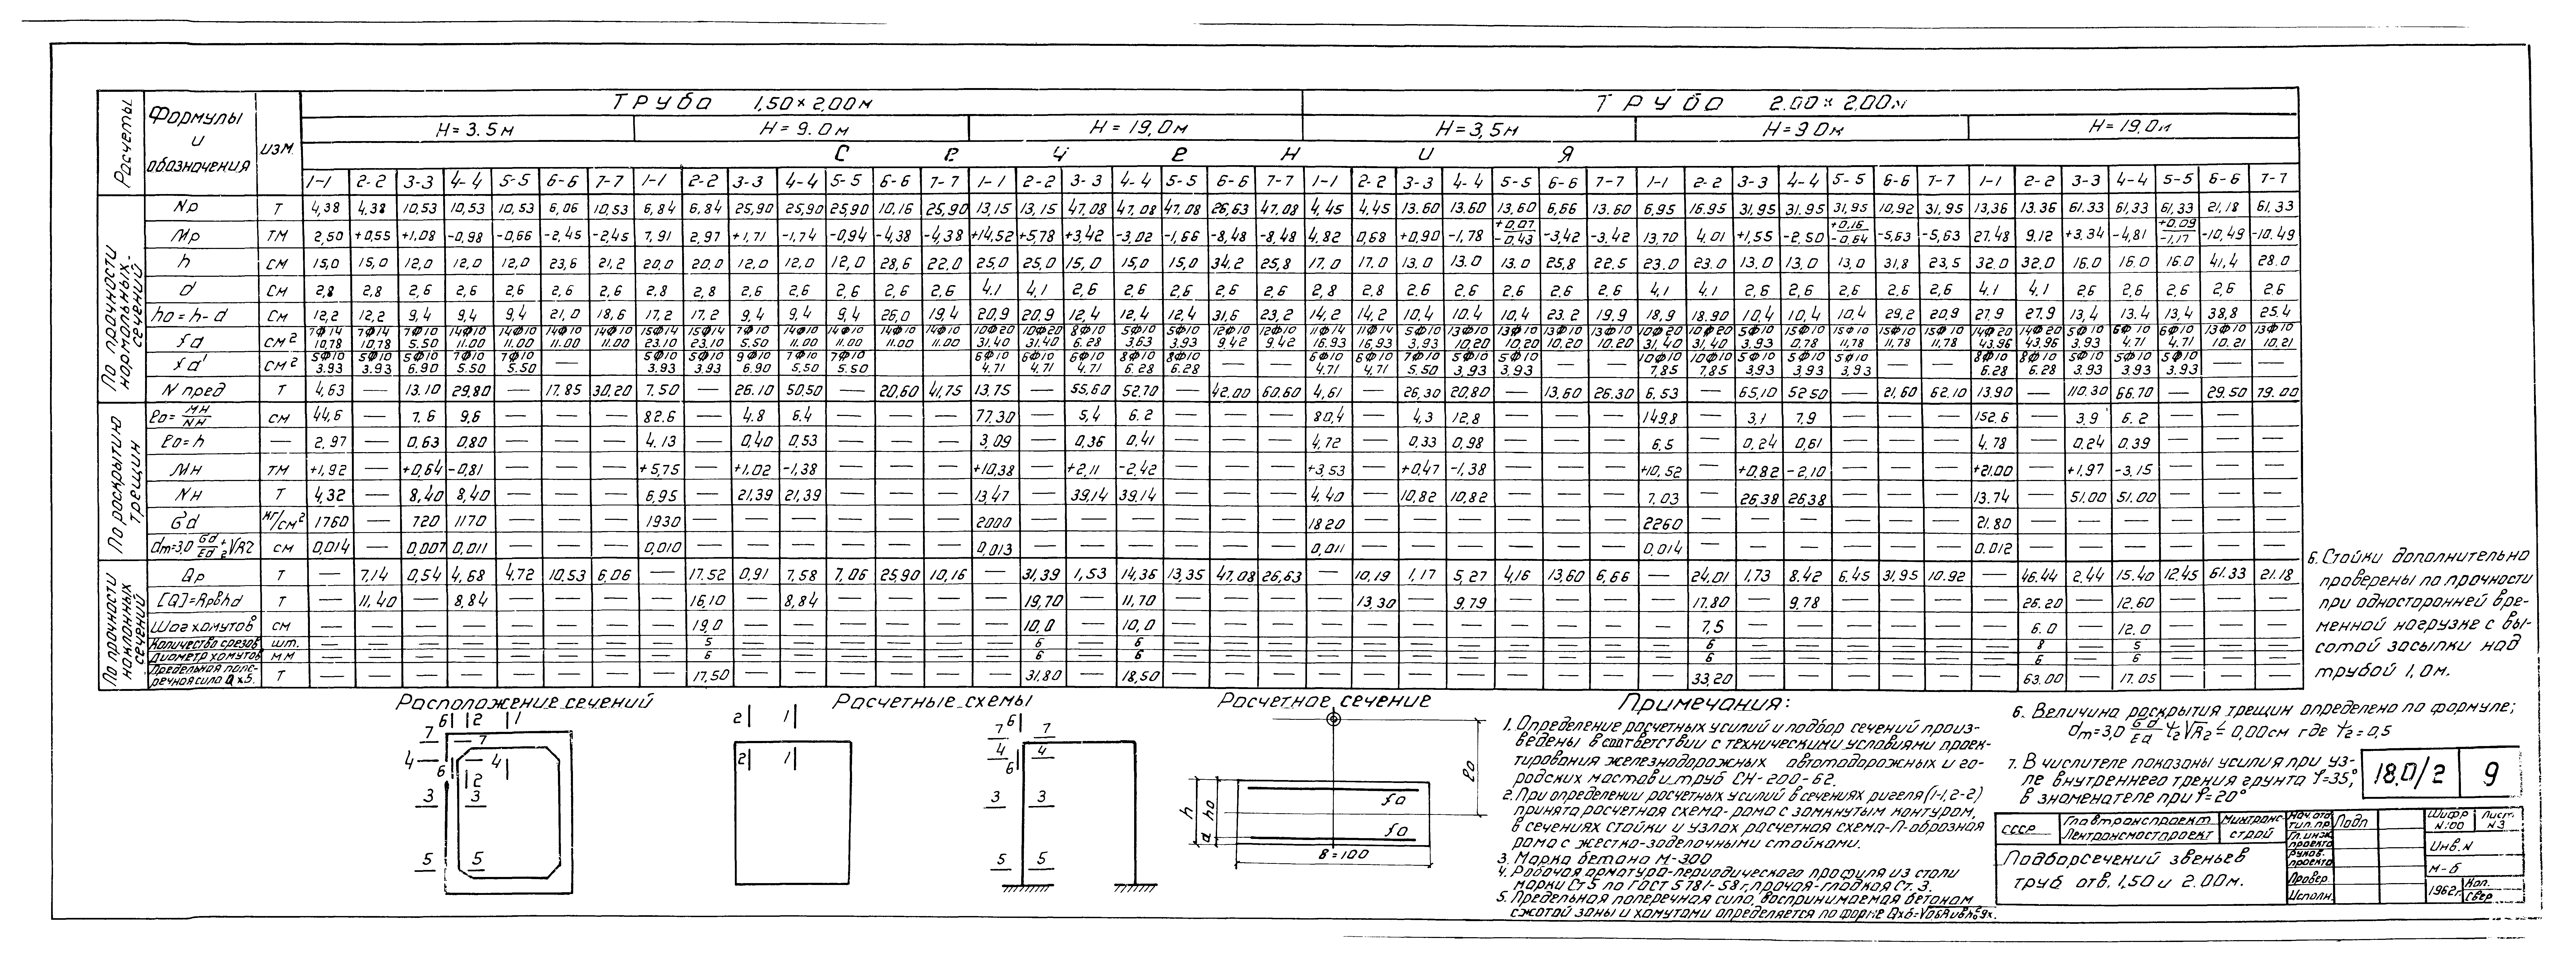 Расчеты
Формулы и обозначения
изм.
Труба 1,50×2,00м
Труба 2.00×2,00м
H=3.5м H=9.0м H=19,0м H=3,5м H=9 0м H=19.0м
Сечения
1-1 2-2 3-3 4-4 5-5 6-6 7-7 1-1 2-2 3-3 4-4 5-5 6-6 7-7 1-1 2-2 3-3 4-4 5-5 6-6 7-7 1-1 2-2 3-3 4-4 5-5 6-6 7-7 1-1 2-2 3-3 4-4 5-5 6-6 7-7 1-1 2-2 3-3 4-4 5-5 6-6 7-7
По прочности нормальных-сечений
Nр т 4,38 4,38 10,53 10,53 10,53 6,06 10,53 6,84 6,84 25,90 25,90 25,90 10,16 25,90 13,15 13,15 47,08 47,08 47,08 26,63 47,08 4,45 4,45 13.60 13.60 13,60 6,66 13.60 6,95 16.95 31,95 31.95 31,95 10,92 31,95 13,36 13.36 61.33 61,33 61,33 21,18 61,33
Mр тм 2,50 +0,55 +1,08 -0,98 -0,66 -2,45 -2,45 7,91 2,97 +1,71 -1,74 -0,94 -4,38 -4,38 +14,52 +5,78 +3,42 -3,02 -1,66 -8,48 -8,48 4,82 0,68 +0,90 -1,78 +0,07/-0,43 -3,42 -3,42 13,70 4,01 +1,55 -2,50 +0,16/-0,64 -5,63 -5,63 27.48 9,12 +3.34 -4,81 +0,09/-1,17 -10,49 -10.49
h см 15,0 15,0 12,0 12,0 12,0 23,6 21,2 20,0 20,0 12,0 12,0 12,0 28,6 22.0 25,0 25,0 15,0 15,0 15,0 34,2 25,8 17.0 17,0 13,0 13.0 13,0 25,8 22.5 23.0 23,0 13,0 13,0 13,0 31,8 23,5 32.0 32,0 16.0 16.0 16.0 41,4 28.0
d см 2,8 2,8 2,6 2,6 2,6 2,6 2,6 2.8 2,8 2,6 2,6 2,6 2,6 2,6 4.1 4,1 2,6 2,6 2,6 2,6 2,6 2,8 2,8 2.6 2.6 2,6 2,6 2,6 4,1 4.1 2,6 2,6 2,6 2,6 2,6 4.1 4.1 2,6 2,6 2,6 2,6 2,6
hо=h-d см 12,2 12,2 9,4 9,4 9,4 21,0 18,6 17,2 17,2 9,4 9,4 9,4 26,0 19,4 20,9 20,9 12,4 12,4 12,4 31,6 23,2 14,2 14,2 10,4 10.4 10,4 23.2 19,9 18,9 18.90 10,4 10,4 10,4 29,2 20,9 27,9 27.9 13,4 13.4 13,4 38,8 25.4
fа см² 7Ф14 7Ф14 7Ф10 14Ф10 14Ф10 14Ф10 14Ф10 15Ф14 15Ф14 7Ф10 14Ф10 14Ф10 14Ф10 14Ф10 10Ф20 10Ф20 8Ф10 5Ф10 5Ф10 12Ф10 12Ф10 11Ф14 11Ф14 5Ф10 13Ф10 13Ф10 13Ф10 13Ф10 10Ф20 10Ф20 5Ф10 15Ф10 15Ф10 15Ф10 15Ф10 14Ф20 14Ф20 5Ф10 6Ф10 6Ф10 13Ф10 13Ф10
10,78 10,78 5.50 11.00 11.00 11.00 11.00 23.10 23,10 5.50 11.00 11.00 11.00 11.00 31.40 31.40 6.28 3,63 3.93 9.42 9.42 16.93 16,93 3.93 10.20 10,20 10,20 10,20 31,40 31,40 3.93 0,78 11,78 11,78 11,78 43,96 43,96 3.93 4.71 4.71 10.21 10,21
fа' см² 5Ф10 5Ф10 5Ф10 7Ф10 7Ф10 — — 5Ф10 5Ф10 9Ф10 7Ф10 7Ф10 6Ф10 6Ф10 6Ф10 8Ф10 8Ф10 — — 6Ф10 6Ф10 7Ф10 5Ф10 5Ф10 — — 10Ф10 10Ф10 5Ф10 5Ф10 5Ф10 — — 8Ф10 8Ф10 5Ф10 5Ф10 5Ф10 — —
3.93 3.93 6.90 5.50 5.50 3.93 3.93 6.90 5.50 5.50 4.71 4,71 4,71 6.28 6.28 4.71 4,71 5.50 3.93 3.93 7,85 7,85 3,93 3,93 3,93 6.28 6.28 3.93 3.93 3.93
N пред т 4,63 — 13.10 29,80 — 17.85 30,20 7.50 — 26.10 50,50 — 20,60 41,75 13.75 — 55,60 52.70 — 42.00 60.60 4,61 — 26,30 20,80 — 13,60 26.30 6.53 — 65,10 52 50 — 21,60 62.10 13.90 — 110.30 66.70 — 29.50 79.00
По раскрытию трещин
ео= Мн/Nн см 44,6 — 7.6 9,6 — — — 82.6 — 4.8 6.4 — — — 77.30 — 5,4 6.2 — — — 80,4 — 4,3 12,8 — — — 149.8 — 3,1 7,9 — — — 152.6 — 3,9 6.2 — — —
ео=h — 2,97 — 0,63 0,80 — — — 4.13 — 0,40 0,53 — — — 3.09 — 0,36 0,41 — — — 4,72 — 0,33 0,98 — — — 6.5 — 0,24 0,61 — — — 4.78 — 0,24 0,39 — — —
Мн тм +1,92 — +0,64 -0,81 — — — +5,75 — +1.02 -1,38 — — — +10,38 — +2,11 -2,42 — — — +3,53 — +0,47 -1,38 — — — +10,52 — +0,82 -2,10 — — — +21.00 — +1,97 -3,15 — — —
Nн т 4,32 — 8,40 8,40 — — — 6,95 — 21,39 21,39 — — — 13.47 — 39,14 39.14 — — — 4.40 — 10,82 10,82 — — — 7,03 — 26.38 26.38 — — — 13.74 — 51.00 51.00 — — —
бd кг/см² 1760 — 720 1170 — — — 1930 — — — — — — 2000 — — — — — — 1820 — — — — — — 2260 — — — — — — 21.80 — — — — — —
dт=3,0 бd/Ed ψ₂√R2 см 0,014 — 0,007 0,011 — — — 0,010 — — — — — — 0,013 — — — — — — 0,011 — — — — — — 0,014 — — — — — — 0.012 — — — — — —
По прочности наклонных сечений
Qр т — 7,14 0,54 4,68 4.72 10,53 6,06 — 17.52 0,91 7,58 7,06 25,90 10,16 — 31,39 1,53 14,36 13,35 47,08 26,63 — 10,19 1,17 5,27 4,16 13,60 6,66 — 24,01 1,73 8.42 6.45 31,95 10.92 — 46.44 2,44 15.40 12.45 61.33 21.18
[Q]=Rрbhd т — 11,40 — 8,84 — — — — 16,10 — 8,84 — — — — 19,70 — 11,70 — — — — 13,30 — 9,79 — — — — 17.80 — 9,78 — — — — 26.20 — 12.60 — — —
Шаг хомутов см — — — — — — — — 19,0 — — — — — — 10,0 — 10,0 — — — — — — — — — — — 7,5 — — — — — — 6.0 — 12.0 — — —
Количество срезов шт. 5 6 6 6 8 5
Диаметр хомутов мм 6 6 6 6 6 6
Предельная поперечная сила Qхб. т 17,50 31,80 18,50 33,20 63.00 17.05
Расположение сечений
Расчетные схемы
Расчетное сечение
6 2 1
7 7
4 4
6 2
3 3
5 5
2 1
2 1
7 6 7
4 4
6
3 3
5 5
ео
h hо
fа
fа
а
в=100
Примечания:
1. Определение расчетных усилий и подбор сечений произ-
ведены в соответствии с техническими условиями проек-
тирования железнодорожных автодорожных и го-
родских мостов и труб СН-200-62.
2. При определении расчетных усилий в сечениях ригеля (1-1, 2-2)
принята расчетная схема-рама с замкнутым контуром,
в сечениях стойки и узлах расчетная схема-П-образная
рама с жестко-заделочными стойками.
3. Марка бетона М-300
4. Рабочая арматура-периодического профиля из стали
марки Ст 5 по ГОСТ 5781-58 г, прочая-гладкая Ст. 3.
5. Предельная поперечная сила, воспринимаемая бетоном
сжатой зоны и хомутами определяется по форме Qхб=√0,6Rиbh₀²gх.
6. Стойки дополнительно
проверены по прочности
при односторонней вре-
менной нагрузке с вы-
сотой засыпки над
трубой 1,0м.
6. Величина раскрытия трещин определено по формуле;
dт=3,0 бd/Ed ψ₂√R2 ≤ 0,00см где ψ₂=0,5
7. В числителе показаны усилия при уз-
ле внутреннего трения грунта φ=35°,
в знаменателе при φ=20°
18.0/2 9
СССР
Главтранспроект
Лентрансмостпроект
Минтранс
строй
Нач. отд. тип. пр.
Подп
Гл. инж. проекта
Руков. проекта
Провер.
Исполн.
Шифр N:00
Лист N3
Инв. N
М-б
1962г.
Коп.
Свер
Подбор сечений звеньев
труб отв. 1,50 и 2.00м.